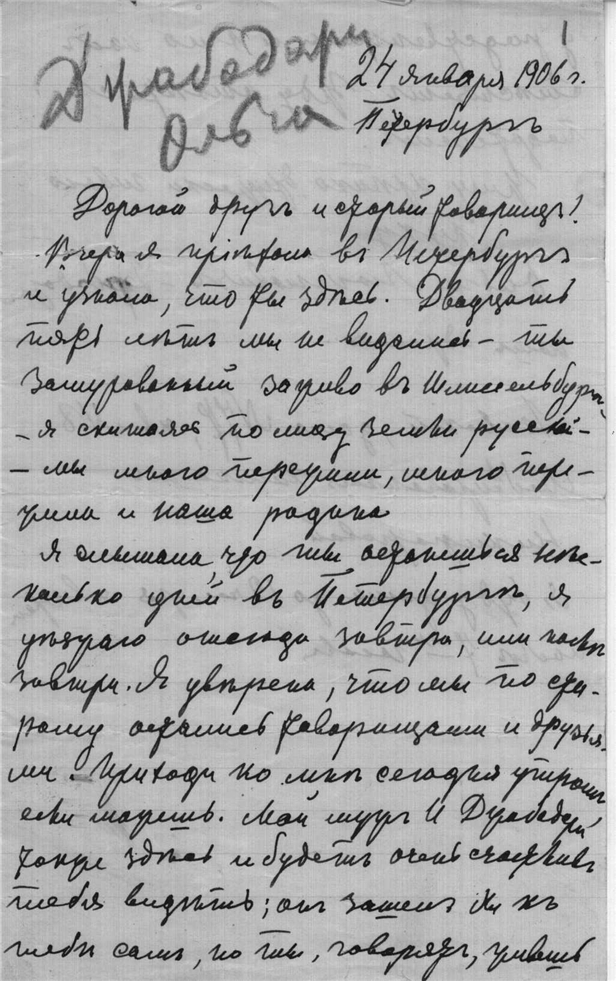 Джабадари
Ольга
1
24 января 1906 г.
Петербургъ
Дорогой другъ и старый товарищъ!
Вчера я пріѣхала въ Петербургъ
и узнала, что ты здѣсь. Двадцать
пять лѣтъ мы не видались – ты
замурованный заживо въ Шлиссельбургѣ
– я скиталась по лицу земли русской –
– мы много пережили, много пере-
жила и наша родина
Я слышала, что ты останешься нѣс-
колько дней въ Петербургѣ, я
уѣзжаю отсюда завтра, или послѣ
завтра. Я увѣрена, что мы по ста-
рому остались товарищами и друзья-
ми. Приходи ко мнѣ сегодня утромъ,
если можешь. Мой мужъ И Джабадари
тоже здѣсь и будетъ очень счастливъ
тебя видѣть; онъ зашелъ бы къ
тебѣ самъ, но ты, говорятъ, живешь